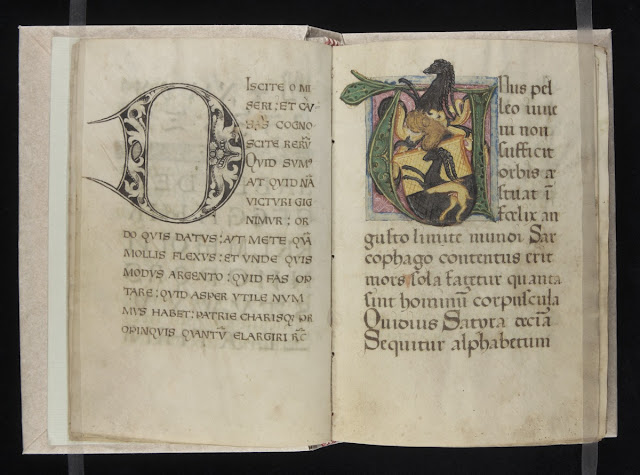 DISCITE O MI
SERI : ET CV̄
SAS COGNO
SCITE RERV̄
QVID SVMꝰ
AT QVID NĀ
VICTVRI GIG
NIMVR : OR
DO QVIS DATVS : AVT METE QVĀ
MOLLIS FLEXVS : ET VNDE QVIS
MODVS ARGENTO : QVID FAS OP
TARE : QVID ASPER VTILE NVM
MVS HABET : PATRIE CHARISQꝫ PR
OPINQVIS QVANTV̄ ELARGIRI
Vnus pel
leo iuue
ni non
sufficit
orbis a
stuat ī
fœlix an
gusto limite mundi. Sar
cophago contentus erit
mors sola fatetur quanta
sint hominū corpuscula
Quidius Satyra
Sequitur alphabetum